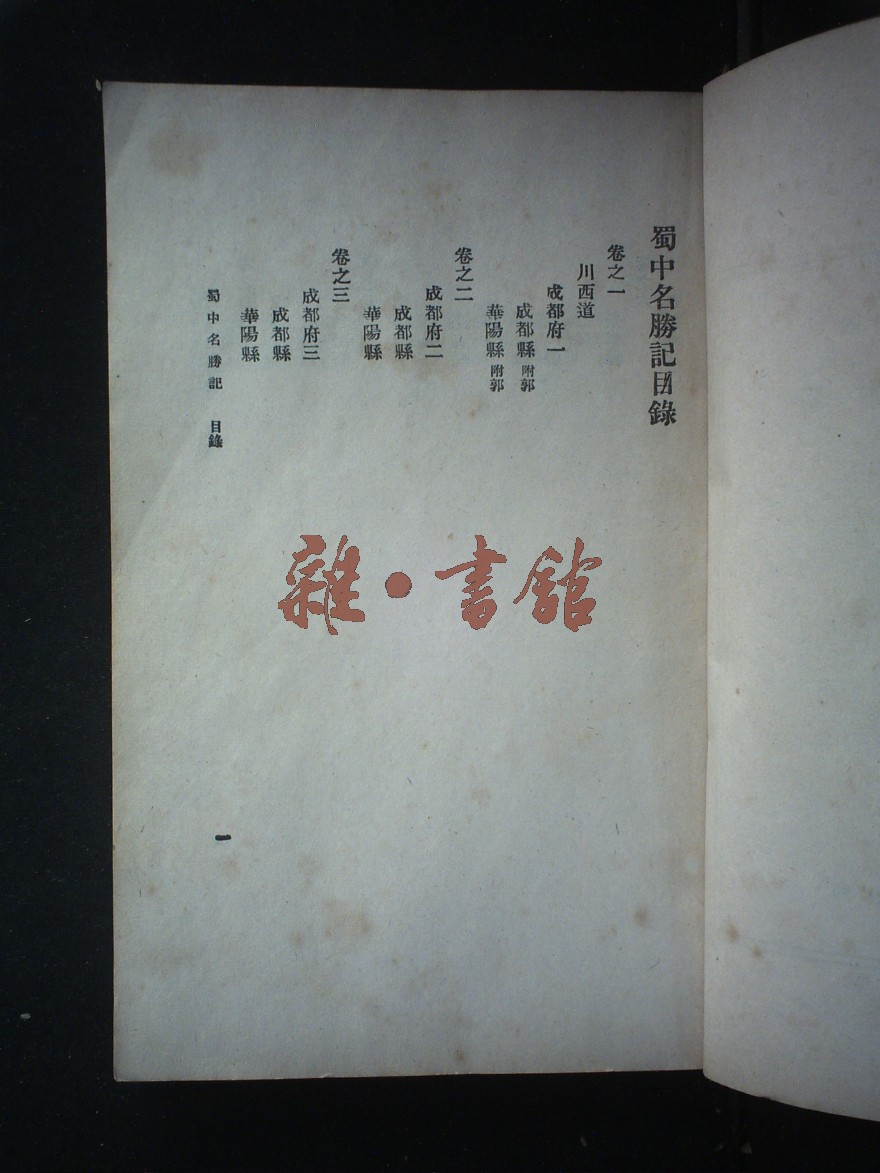 蜀中名勝記目錄
卷之一
川西道
成都府一
成都縣 附郭
華陽縣 附郭
卷之二
成都府二
成都縣
華陽縣
卷之三
成都府三
成都縣
華陽縣
蜀中名勝記 目錄 一
雜·書館